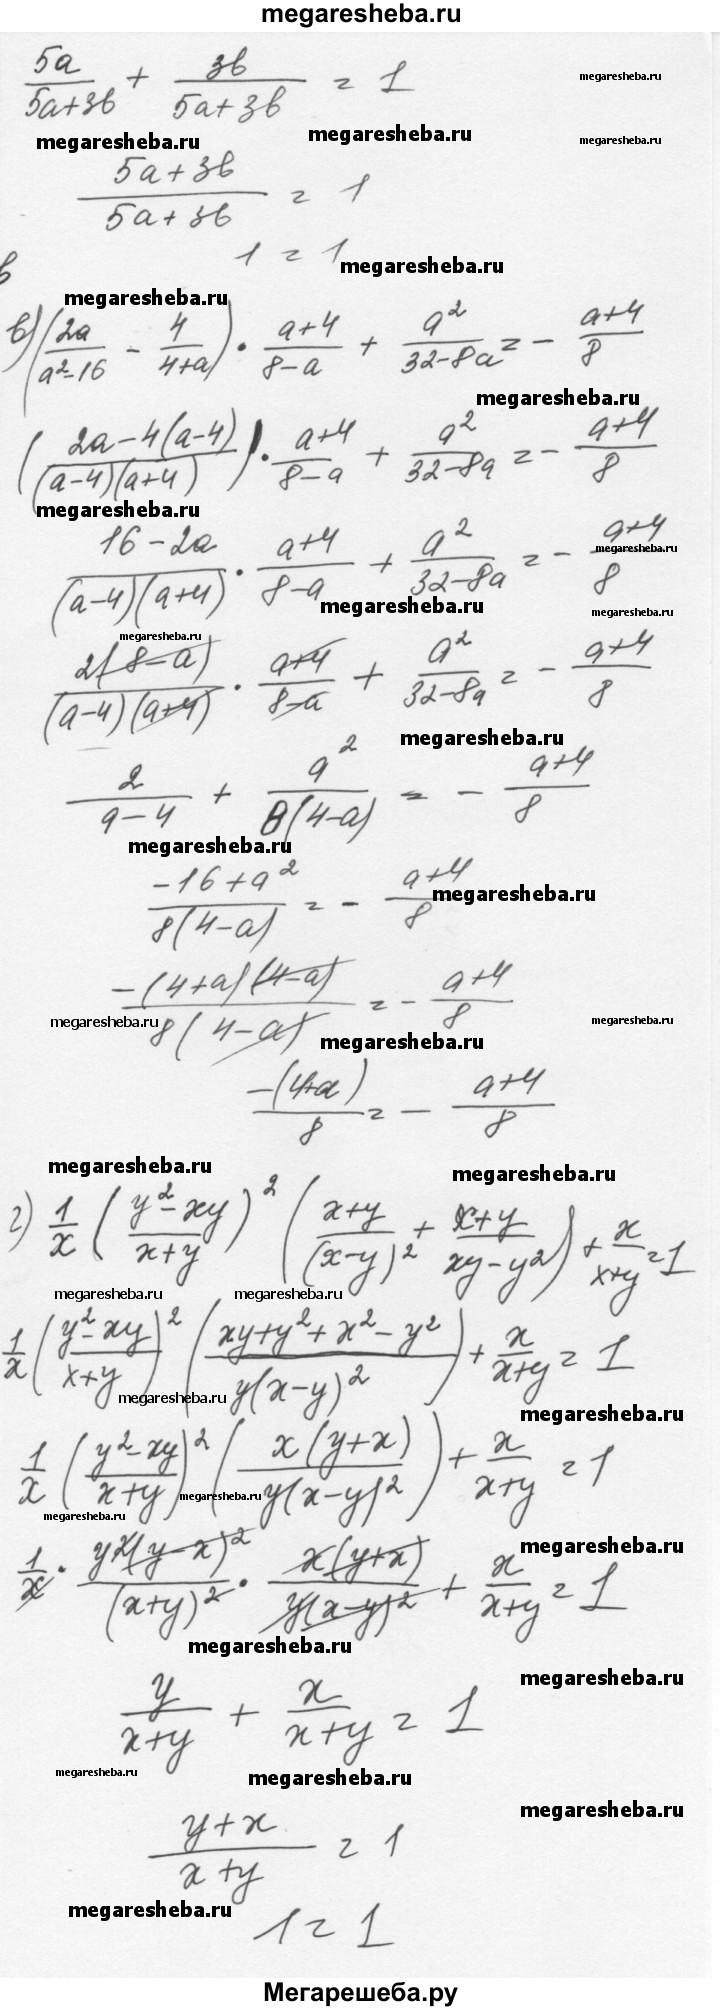 megaresheba.ru
5a/(5a+3b) + 3b/(5a+3b) = 1
megaresheba.ru
megaresheba.ru megaresheba.ru megaresheba.ru
(5a+3b)/(5a+3b) = 1
1 = 1 megaresheba.ru
в
megaresheba.ru
в) (2a/(a²-16) - 4/(4+a)) · (a+4)/(8-a) + a²/(32-8a) = - (a+4)/8
megaresheba.ru
((2a-4(a-4))/((a-4)(a+4))) · (a+4)/(8-a) + a²/(32-8a) = - (a+4)/8
megaresheba.ru
(16-2a)/((a-4)(a+4)) · (a+4)/(8-a) + a²/(32-8a) = - (a+4)/8
megaresheba.ru
megaresheba.ru megaresheba.ru
megaresheba.ru
2(8-a)/((a-4)(a+4)) · (a+4)/(8-a) + a²/(32-8a) = - (a+4)/8
megaresheba.ru
2/(a-4) + a²/(8(4-a)) = - (a+4)/8
megaresheba.ru
(-16+a²)/(8(4-a)) = - (a+4)/8
megaresheba.ru
-(4+a)(4-a)/(8(4-a)) = - (a+4)/8
megaresheba.ru megaresheba.ru
megaresheba.ru
-(4+a)/8 = - (a+4)/8
megaresheba.ru megaresheba.ru
г) 1/x ((y²-xy)/(x+y))² ((x+y)/(x-y)² + (x+y)/(xy-y²)) + x/(x+y) = 1
megaresheba.ru megaresheba.ru
1/x ((y²-xy)/(x+y))² ((xy+y²+x²-y²)/(y(x-y)²)) + x/(x+y) = 1
megaresheba.ru megaresheba.ru
1/x ((y²-xy)/(x+y))² (x(y+x)/(y(x-y)²)) + x/(x+y) = 1
megaresheba.ru
megaresheba.ru
megaresheba.ru
1/x · y²(y-x)²/(x+y)² · x(y+x)/(y(x-y)²) + x/(x+y) = 1
megaresheba.ru
megaresheba.ru
y/(x+y) + x/(x+y) = 1
megaresheba.ru megaresheba.ru
megaresheba.ru
(y+x)/(x+y) = 1
megaresheba.ru
1 = 1
Мегарешеба.ру